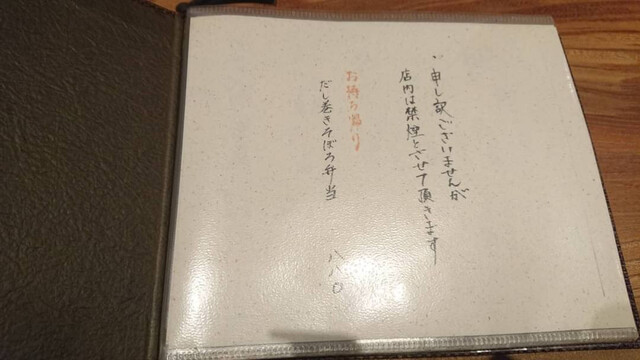 申し訳ございませんが
店内は禁煙とさせて頂きます
お持ち帰り
だし巻きそぼろ弁当 八八〇